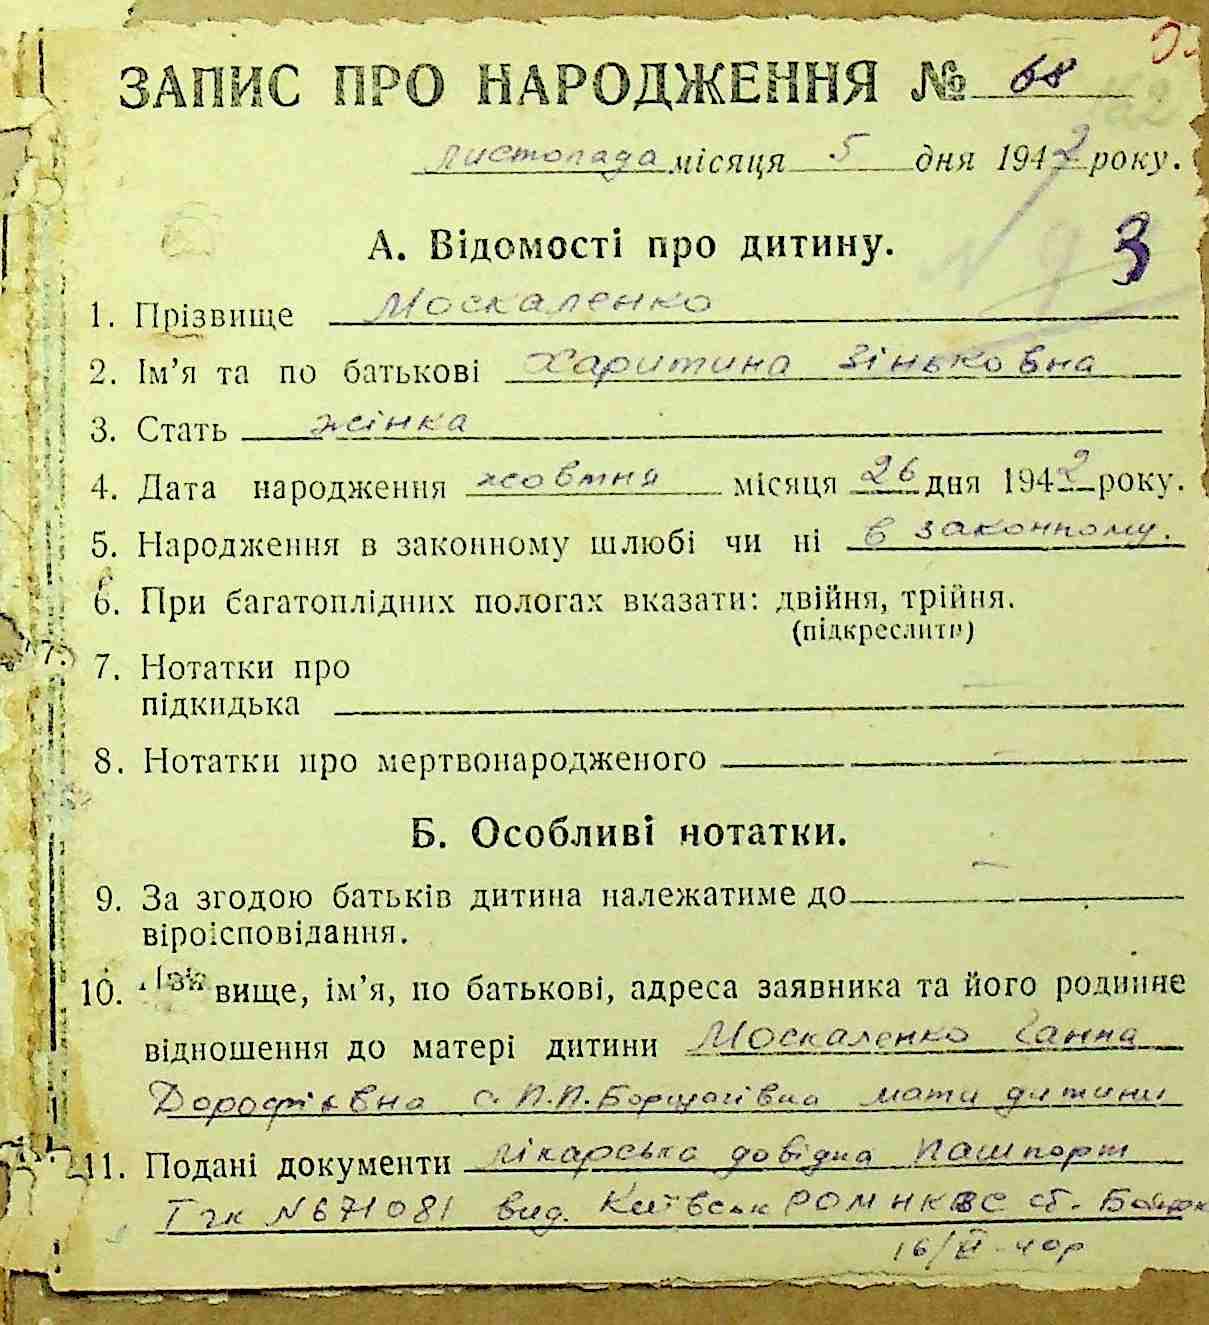 ЗАПИС ПРО НАРОДЖЕННЯ № 68
листопада місяця 5 дня 1942 року.
А. Відомості про дитину.
3
1. Прізвище Москаленко
2. Ім'я та по батькові Харитина Зіньковна
3. Стать жінка
4. Дата народження жовтня місяця 26 дня 1942 року.
5. Народження в законному шлюбі чи ні в законному.
6. При багатоплідних пологах вказати: двійня, трійня.
(підкреслити)
7. Нотатки про
підкидька
8. Нотатки про мертвонародженого
Б. Особливі нотатки.
9. За згодою батьків дитина належатиме до
віроісповідання.
10. вище, ім'я, по батькові, адреса заявника та його родинне
відношення до матері дитини Москаленко Ганна
Дорофіівна с. П.П.Борщагівка мати дитини
11. Подані документи лікарська довідка пашпорт
№ 671081 вид. Київськ РОМ НКВС ст.
16/